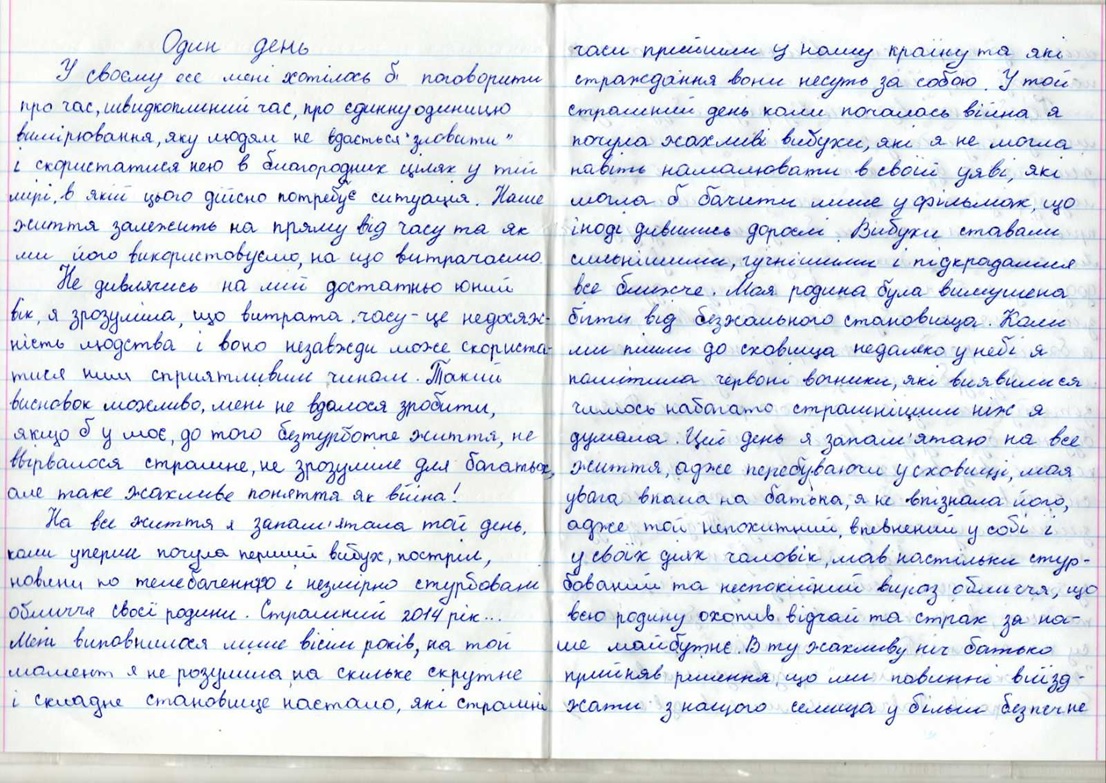 Один день
У своєму есе мені хотілось б поговорити
про час, швидкоплинний час, про єдинну одиницю
вимірювання, яку людям не вдається "зловити"
і скористатися нею в благородних цілях у тій
мірі, в якій цього дійсно потребує ситуація. Наше
життя залежить на пряму від часу та як
ми його використовуємо, на що витрачаємо.
Не дивлячись на мій достатньо юний
вік, я зрозуміла, що витрата часу - це недосяж-
ність людства і воно незавжди може скориста-
тися ним сприятливим чином. Такий
висновок можливо, мені не вдалося зробити,
якщо б у моє, до того безтурботне життя, не
ввірвалося страшне, не зрозуміле для багатьох,
але таке жахливе поняття як війна!
На все життя я запам'ятала той день,
коли уперше почула перший вибух, постріл,
новини по телебаченню і незмірно стурбовані
обличчя своєї родини. Страшний 2014 рік...
Мені виповнилося лише вісім років, на той
момент я не розуміла, на скільке скрутне
і складне становище настало, які страшні
часи прийшли у нашу країну та які
страждання вони несуть за собою. У той
страшний день коли почалась війна я
почула жахливі вибухи, які я не могла
навіть намалювати в своїй уяві, які
могла б бачити лише у фільмах, що
іноді дивились дорослі. Вибухи ставали
сильнішими, гучнішими і підкрадалися
все ближче. Моя родина була вимушена
бігти від безжального становища. Коли
ми пішли до сховища недалеко у небі я
помітила червоні вогники, які виявилися
чимось набагато страшнішим ніж я
думала. Цей день я запам'ятаю на все
життя, адже перебуваючи у сховищі, моя
увага впала на батька, я не впізнала його,
адже той непохитний, впевнений у собі і
у своїх діях чоловік, мав настільки стур-
бований та неспокійний вираз обличчя, що
всю родину охопив відчай та страх за на-
ше майбутнє. В ту жахливу ніч батько
прийняв рішення, що ми повинні виїзд-
жати з нашого селища у більш безпечне